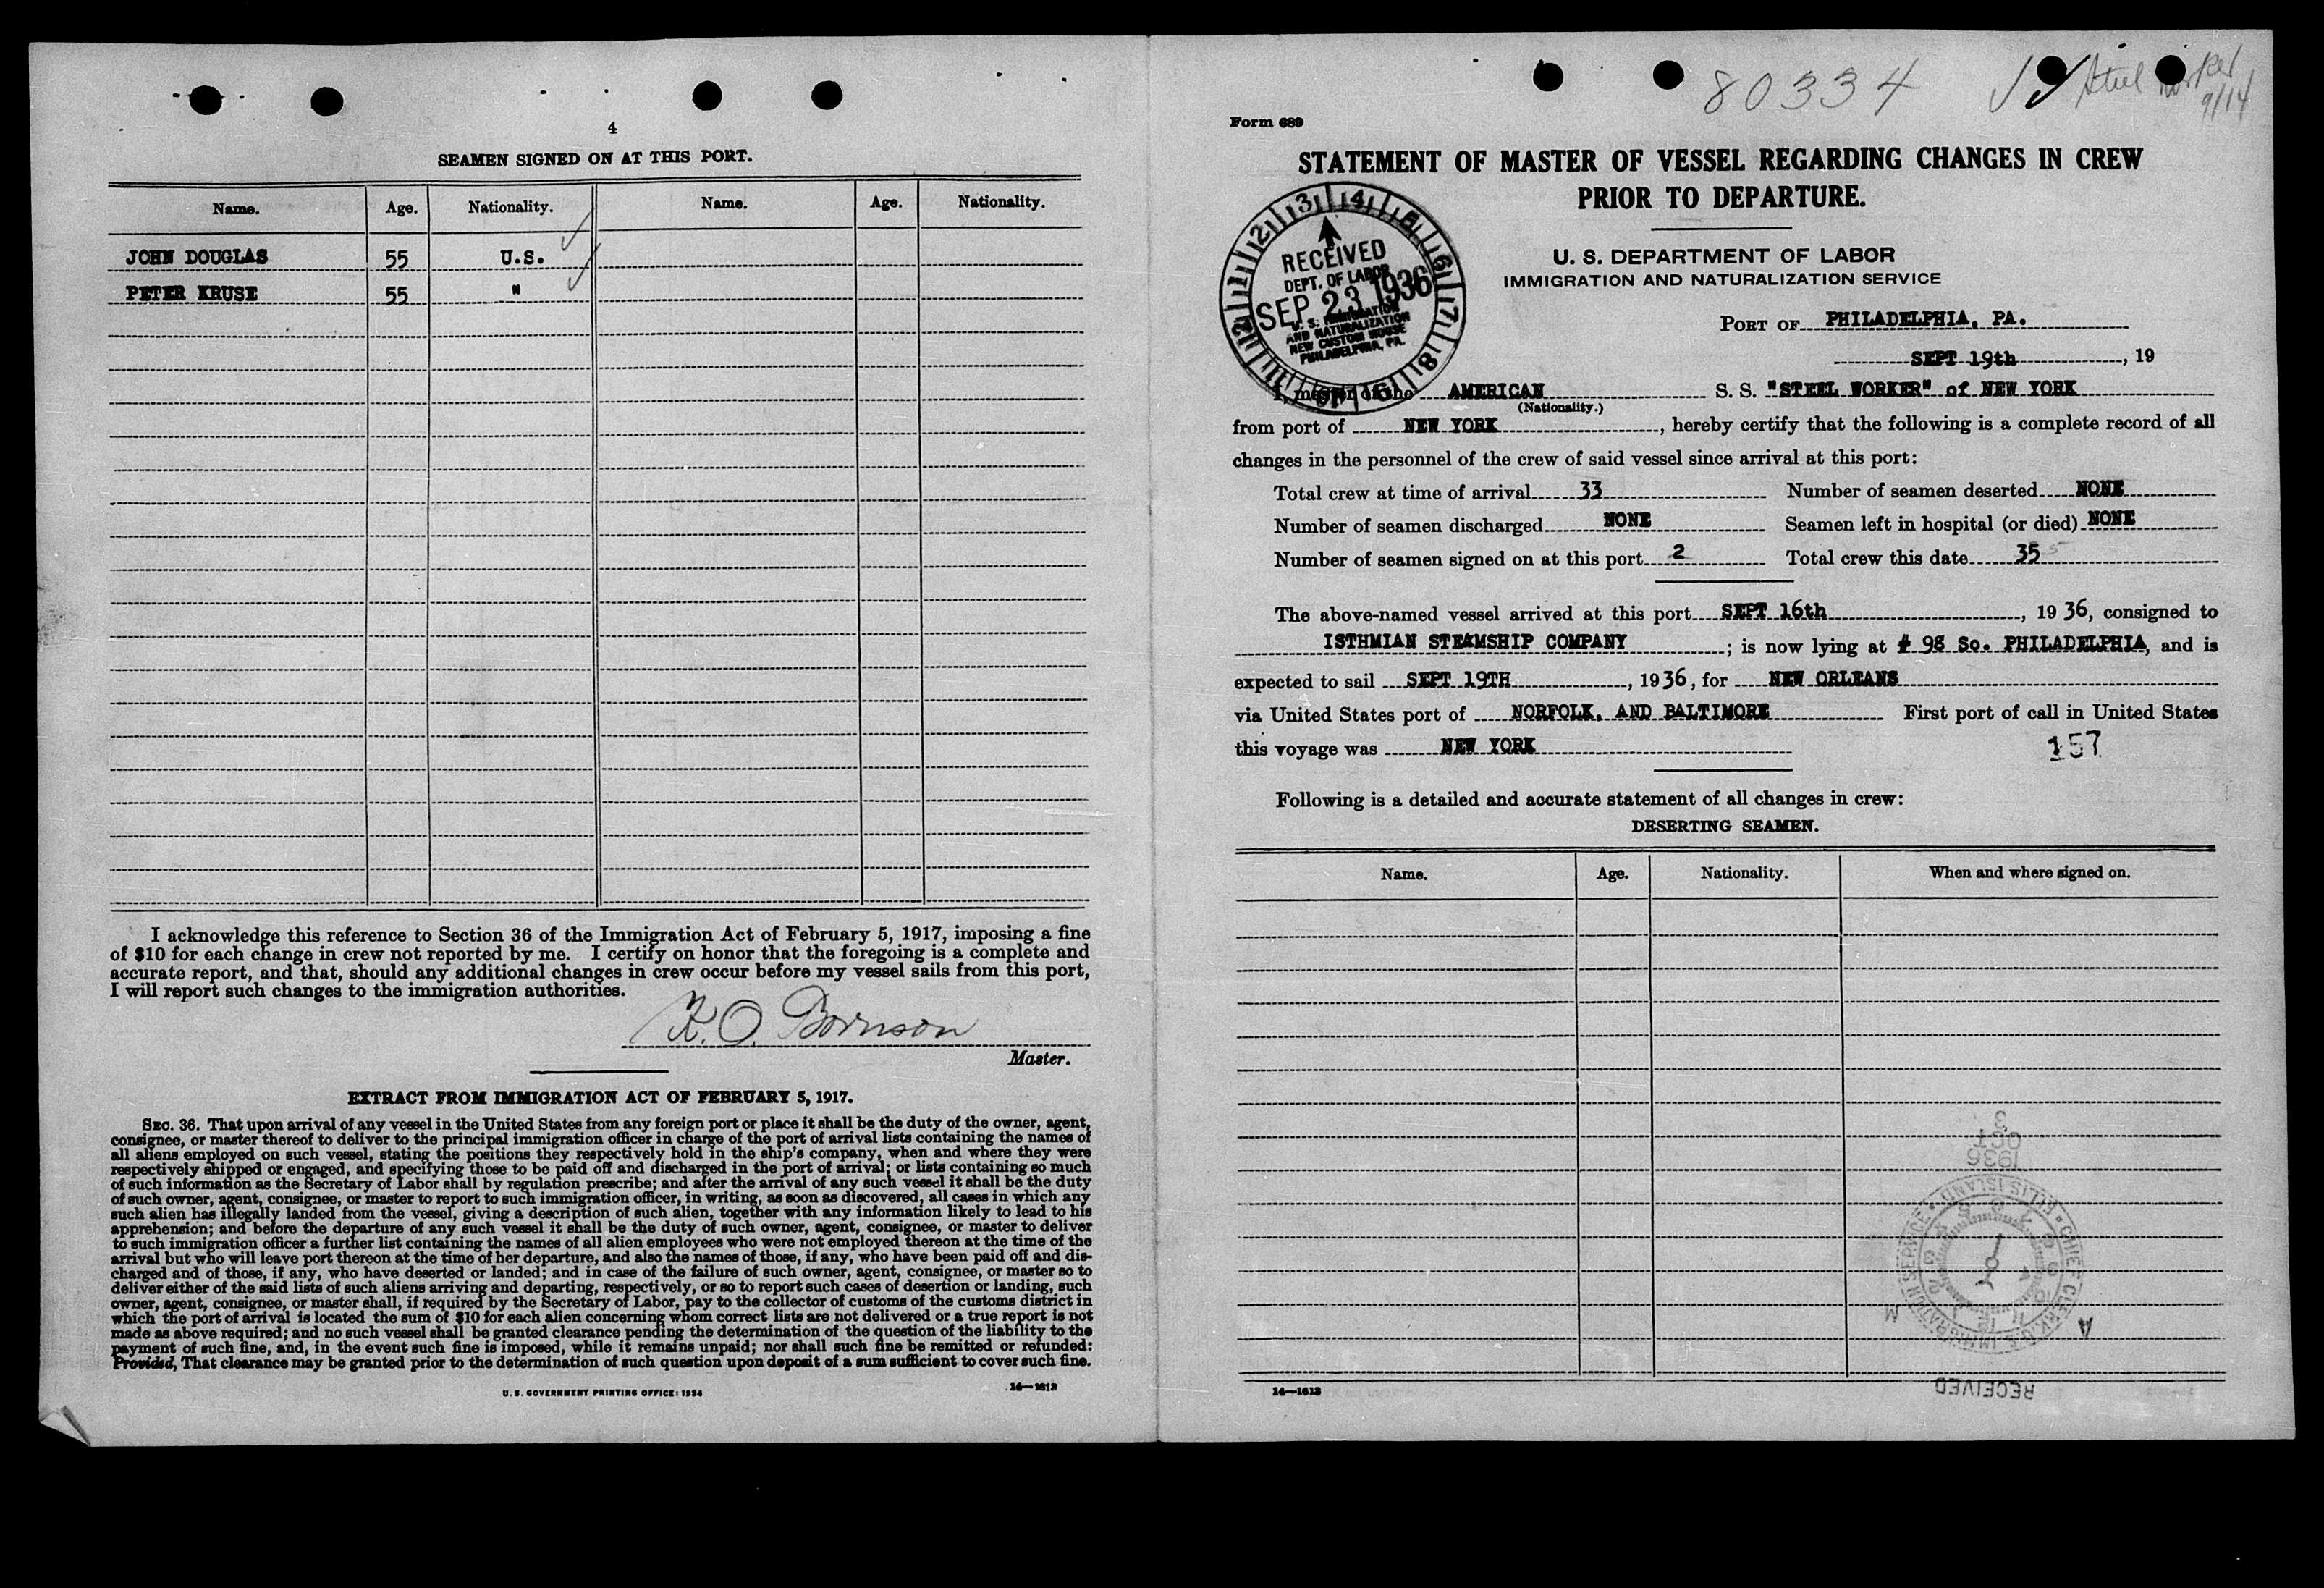 4
SEAMEN SIGNED ON AT THIS PORT.
Name. Age. Nationality. Name. Age. Nationality.
JOHN DOUGLAS 55 U.S.
PETER KRUSE 55 "
I acknowledge this reference to Section 36 of the Immigration Act of February 5, 1917, imposing a fine
of $10 for each change in crew not reported by me. I certify on honor that the foregoing is a complete and
accurate report, and that, should any additional changes in crew occur before my vessel sails from this port,
I will report such changes to the immigration authorities.
K. O. Bornson
Master.
EXTRACT FROM IMMIGRATION ACT OF FEBRUARY 5, 1917.
SEC. 36. That upon arrival of any vessel in the United States from any foreign port or place it shall be the duty of the owner, agent,
consignee, or master thereof to deliver to the principal immigration officer in charge of the port of arrival lists containing the names of
all aliens employed on such vessel, stating the positions they respectively hold in the ship's company, when and where they were
respectively shipped or engaged, and specifying those to be paid off and discharged in the port of arrival; or lists containing so much
of such information as the Secretary of Labor shall by regulation prescribe; and after the arrival of any such vessel it shall be the duty
of such owner, agent, consignee, or master to report to such immigration officer, in writing, as soon as discovered, all cases in which any
such alien has illegally landed from the vessel, giving a description of such alien, together with any information likely to lead to his
apprehension; and before the departure of any such vessel it shall be the duty of such owner, agent, consignee, or master to deliver
to such immigration officer a further list containing the names of all alien employees who were not employed thereon at the time of the
arrival but who will leave port thereon at the time of her departure, and also the names of those, if any, who have been paid off and dis-
charged and of those, if any, who have deserted or landed; and in case of the failure of such owner, agent, consignee, or master so to
deliver either of the said lists of such aliens arriving and departing, respectively, or so to report such cases of desertion or landing, such
owner, agent, consignee, or master shall, if required by the Secretary of Labor, pay to the collector of customs of the customs district in
which the port of arrival is located the sum of $10 for each alien concerning whom correct lists are not delivered or a true report is not
made as above required; and no such vessel shall be granted clearance pending the determination of the question of the liability to the
payment of such fine, and, in the event such fine is imposed, while it remains unpaid; nor shall such fine be remitted or refunded:
Provided, That clearance may be granted prior to the determination of such question upon deposit of a sum sufficient to cover such fine.
U. S. GOVERNMENT PRINTING OFFICE: 1934 14—1613
80334
Steel Worker
9/14
Form 689
STATEMENT OF MASTER OF VESSEL REGARDING CHANGES IN CREW
PRIOR TO DEPARTURE.
U. S. DEPARTMENT OF LABOR
IMMIGRATION AND NATURALIZATION SERVICE
RECEIVED
DEPT. OF LABOR
SEP 23 1936
U. S. IMMIGRATION
AND NATURALIZATION
NEW CUSTOM HOUSE
PHILADELPHIA, PA.
PORT OF PHILADELPHIA, PA.
SEPT 19th, 19
I, master of the AMERICAN S. S. "STEEL WORKER" of NEW YORK
(Nationality.)
from port of NEW YORK, hereby certify that the following is a complete record of all
changes in the personnel of the crew of said vessel since arrival at this port:
Total crew at time of arrival 33 Number of seamen deserted NONE
Number of seamen discharged NONE Seamen left in hospital (or died) NONE
Number of seamen signed on at this port 2 Total crew this date 35
The above-named vessel arrived at this port SEPT 16th, 1936, consigned to
ISTHMIAN STEAMSHIP COMPANY; is now lying at # 98 So. PHILADELPHIA, and is
expected to sail SEPT 19TH, 1936, for NEW ORLEANS
via United States port of NORFOLK, AND BALTIMORE First port of call in United States
this voyage was NEW YORK
157
Following is a detailed and accurate statement of all changes in crew:
DESERTING SEAMEN.
Name. Age. Nationality. When and where signed on.
3
OCT
1936
CHIEF CLERK U.S. IMMIGRATION SERVICE • ELLIS ISLAND •
A M
RECEIVED
14—1613